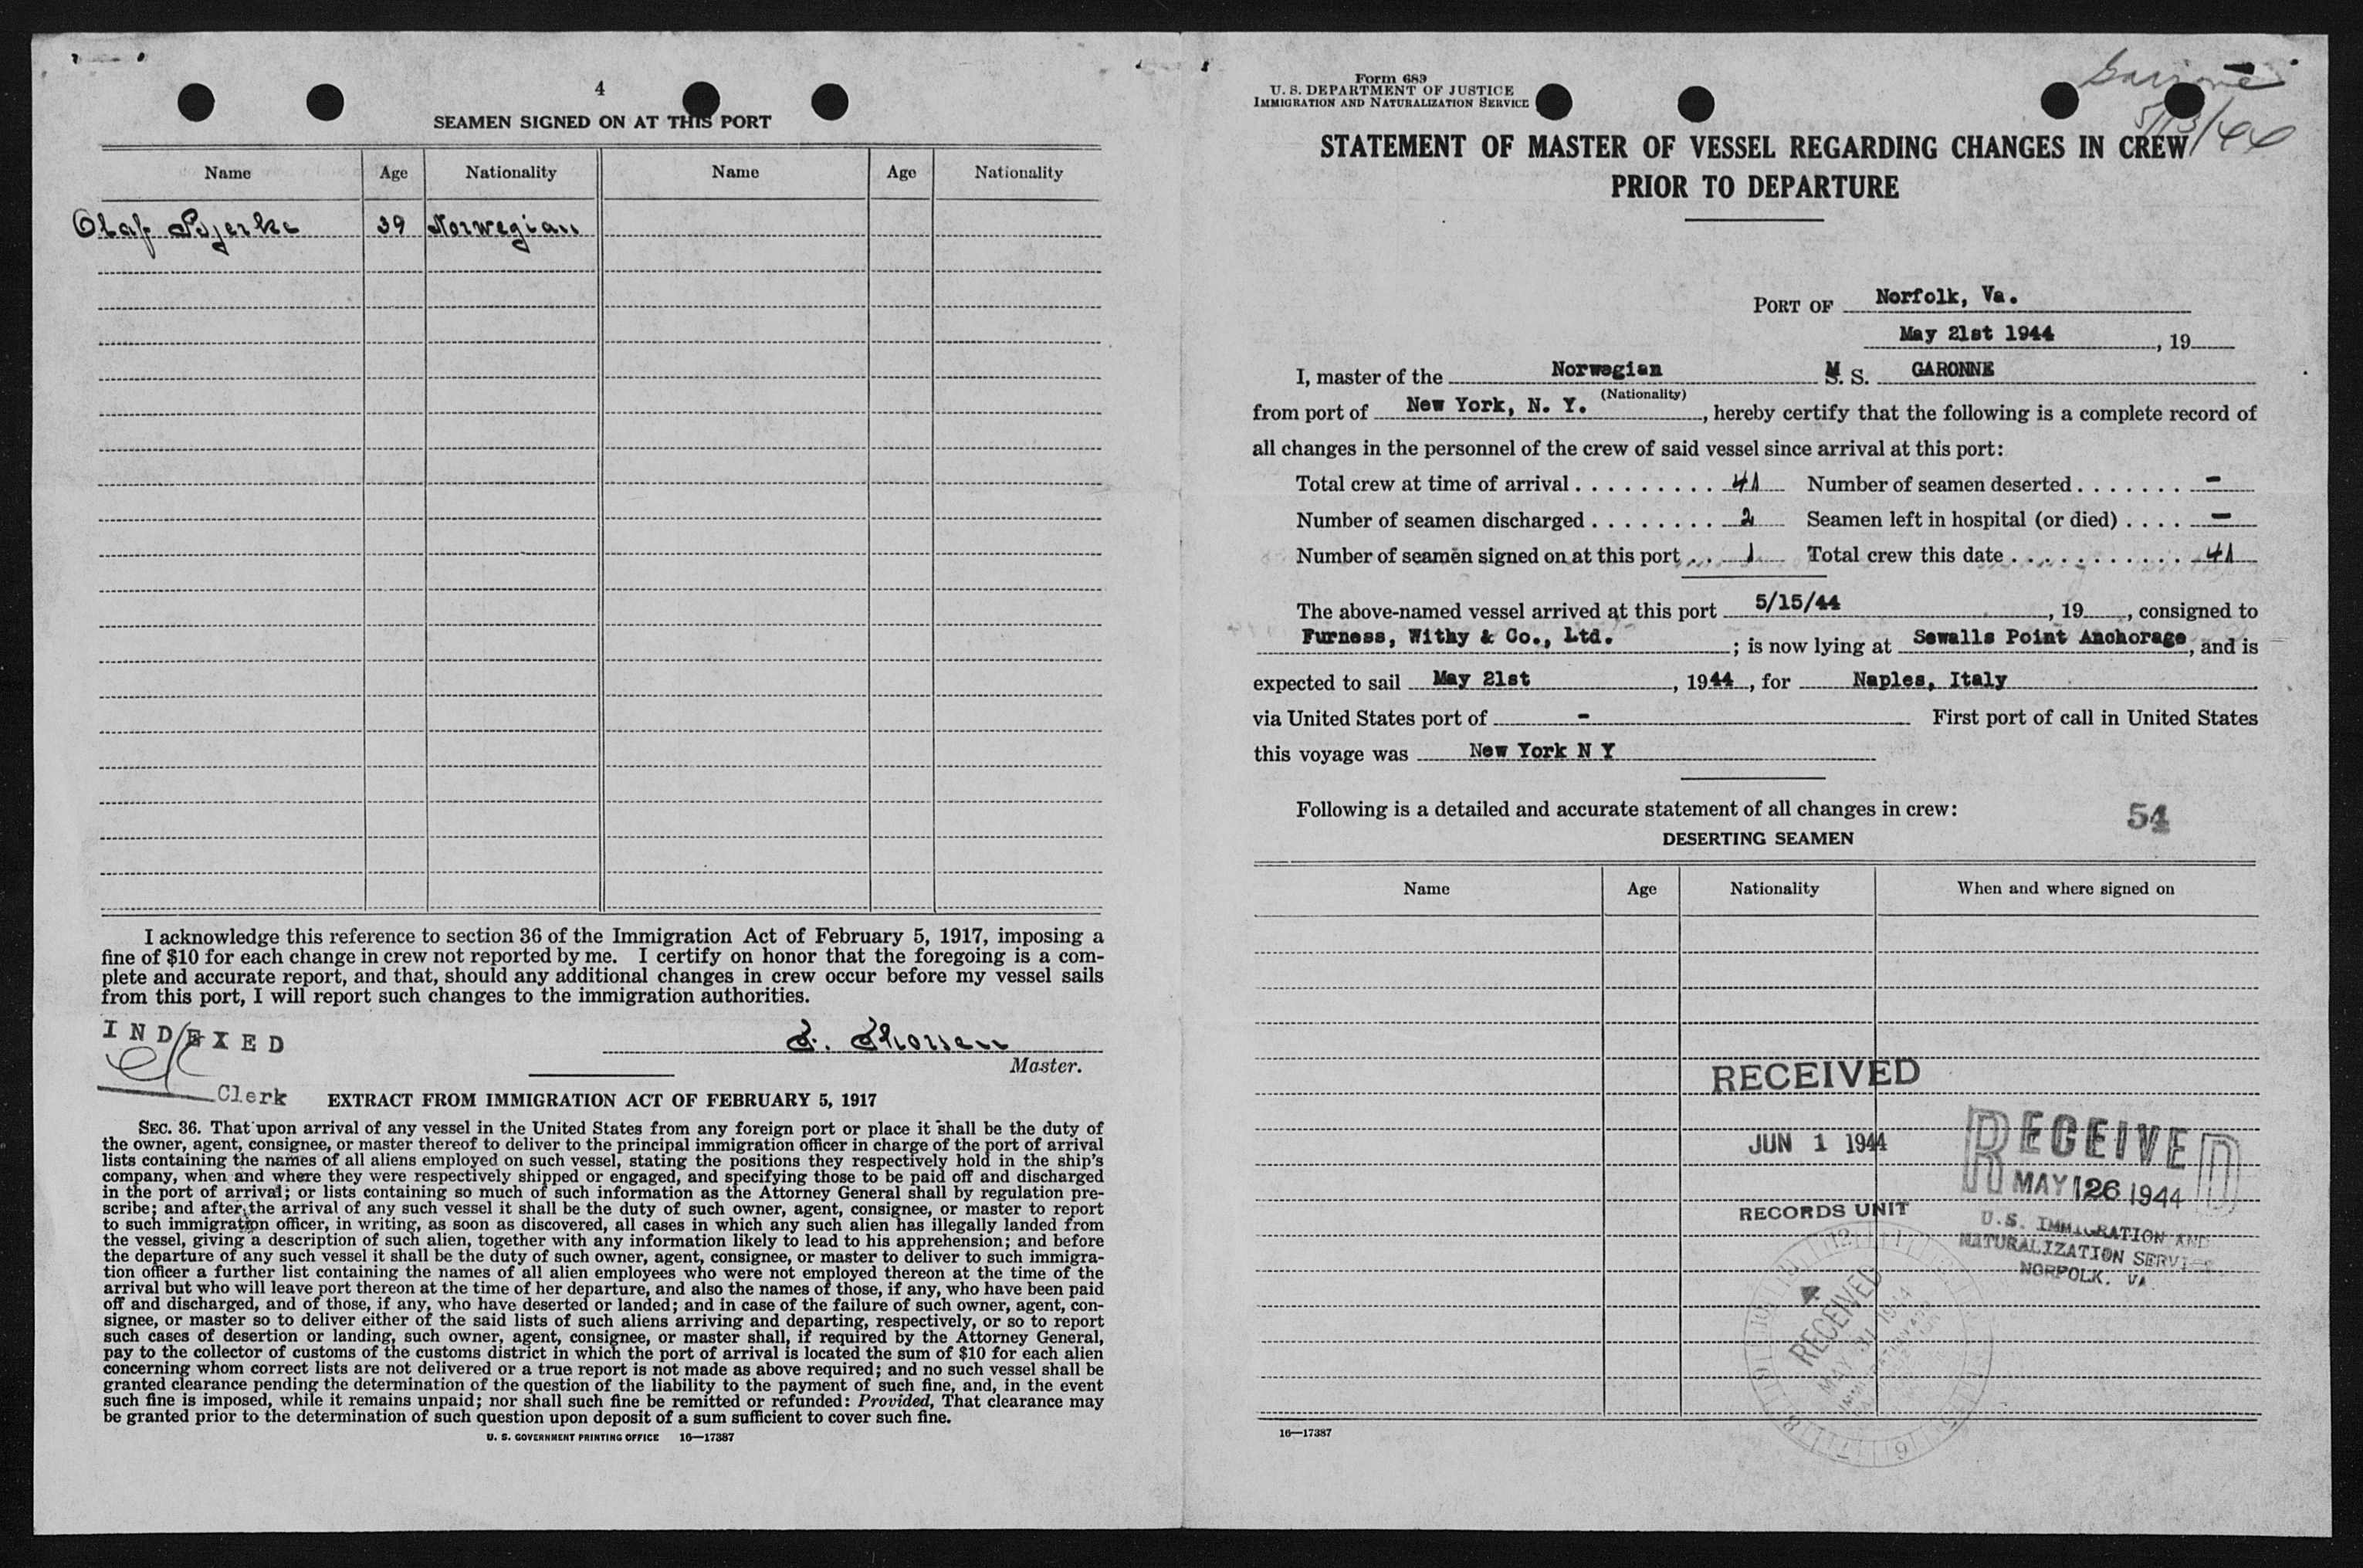 4
SEAMEN SIGNED ON AT THIS PORT
Name Age Nationality Name Age Nationality
Olaf Bjerke 39 Norwegian
I acknowledge this reference to section 36 of the Immigration Act of February 5, 1917, imposing a
fine of $10 for each change in crew not reported by me. I certify on honor that the foregoing is a com-
plete and accurate report, and that, should any additional changes in crew occur before my vessel sails
from this port, I will report such changes to the immigration authorities.
INDEXED
Master.
Clerk
EXTRACT FROM IMMIGRATION ACT OF FEBRUARY 5, 1917
SEC. 36. That upon arrival of any vessel in the United States from any foreign port or place it shall be the duty of
the owner, agent, consignee, or master thereof to deliver to the principal immigration officer in charge of the port of arrival
lists containing the names of all aliens employed on such vessel, stating the positions they respectively hold in the ship's
company, when and where they were respectively shipped or engaged, and specifying those to be paid off and discharged
in the port of arrival; or lists containing so much of such information as the Attorney General shall by regulation pre-
scribe; and after the arrival of any such vessel it shall be the duty of such owner, agent, consignee, or master to report
to such immigration officer, in writing, as soon as discovered, all cases in which any such alien has illegally landed from
the vessel, giving a description of such alien, together with any information likely to lead to his apprehension; and before
the departure of any such vessel it shall be the duty of such owner, agent, consignee, or master to deliver to such immigra-
tion officer a further list containing the names of all alien employees who were not employed thereon at the time of the
arrival but who will leave port thereon at the time of her departure, and also the names of those, if any, who have been paid
off and discharged, and of those, if any, who have deserted or landed; and in case of the failure of such owner, agent, con-
signee, or master so to deliver either of the said lists of such aliens arriving and departing, respectively, or so to report
such cases of desertion or landing, such owner, agent, consignee, or master shall, if required by the Attorney General,
pay to the collector of customs of the customs district in which the port of arrival is located the sum of $10 for each alien
concerning whom correct lists are not delivered or a true report is not made as above required; and no such vessel shall be
granted clearance pending the determination of the question of the liability to the payment of such fine, and, in the event
such fine is imposed, while it remains unpaid; nor shall such fine be remitted or refunded: Provided, That clearance may
be granted prior to the determination of such question upon deposit of a sum sufficient to cover such fine.
U. S. GOVERNMENT PRINTING OFFICE 16—17387
Form 689
U. S. DEPARTMENT OF JUSTICE
IMMIGRATION AND NATURALIZATION SERVICE
STATEMENT OF MASTER OF VESSEL REGARDING CHANGES IN CREW
PRIOR TO DEPARTURE
PORT OF Norfolk, Va.
May 21st 1944, 19
I, master of the Norwegian M. S. GARONNE
(Nationality)
from port of New York, N. Y., hereby certify that the following is a complete record of
all changes in the personnel of the crew of said vessel since arrival at this port:
Total crew at time of arrival 41 Number of seamen deserted -
Number of seamen discharged 2 Seamen left in hospital (or died) -
Number of seamen signed on at this port 1 Total crew this date 41
The above-named vessel arrived at this port 5/15/44, 19, consigned to
Furness, Withy & Co., Ltd.; is now lying at Sewalls Point Anchorage, and is
expected to sail May 21st, 1944, for Naples, Italy
via United States port of - First port of call in United States
this voyage was New York N Y
Following is a detailed and accurate statement of all changes in crew:
54
DESERTING SEAMEN
Name Age Nationality When and where signed on
RECEIVED
JUN 1 1944
RECORDS UNIT
RECEIVED
MAY 26 1944
U.S. IMMIGRATION AND
NATURALIZATION SERVICE
NORFOLK. VA
RECEIVED
MAY 31 1944
16—17387